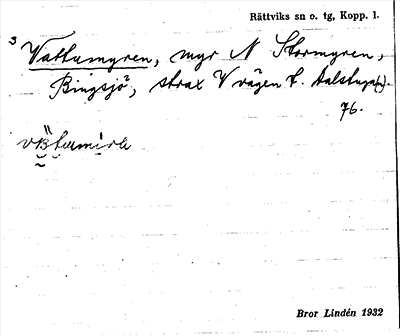 Rättviks sn o. tg, Kopp. l.
3
Vattumyren, myr N Stormyren,
Bingsjö, strax V vägen t. Dalstuga(n).
76.
Bror Lindén 1932